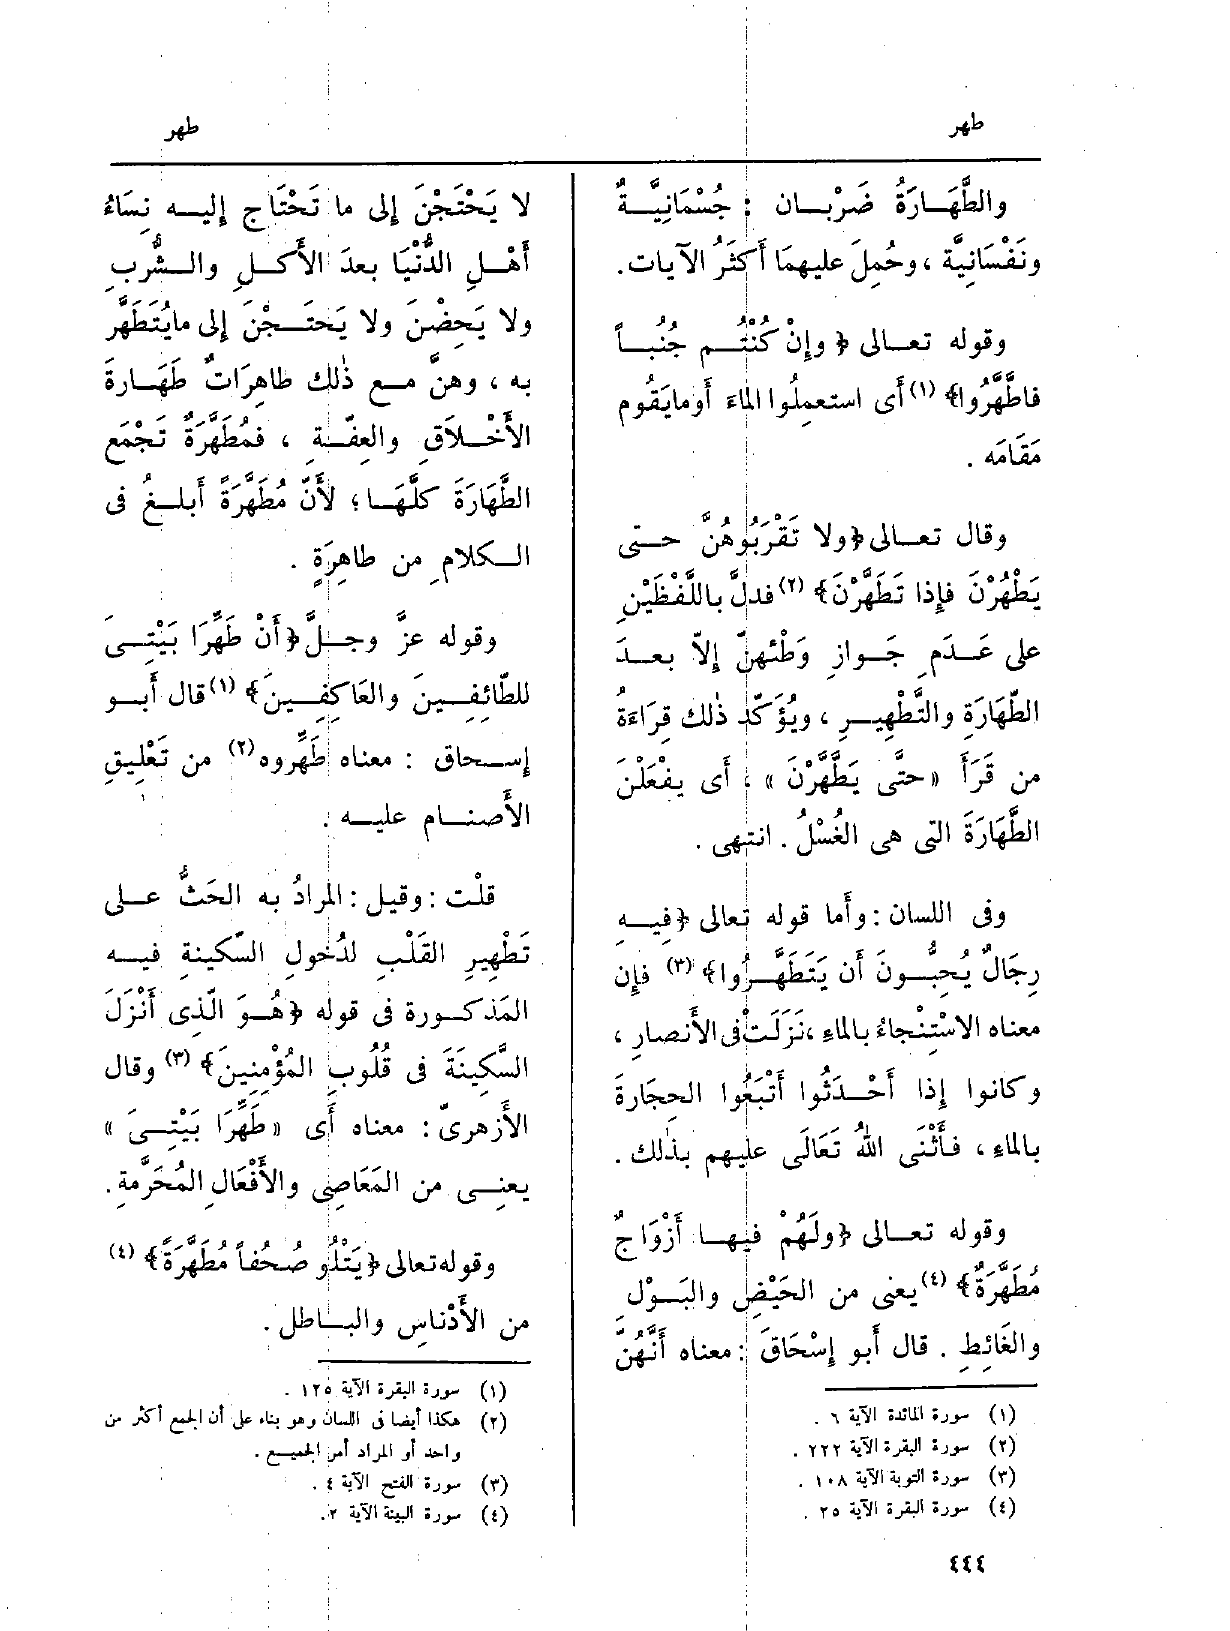 طهر
طهر
والطَّهَارَةُ ضَرْبان : جُسْمَانِيَّةٌ
ونَفْسَانِيَّة ، وحُمِلَ عليهمَا أَكثَرُ الآيات.
وقوله تعالى ﴿ وإنْ كُنْتُم جُنُباً
فاطَّهَّرُوا﴾ (١) أى استعمِلُوا الماءَ أومايَقُوم
مَقَامَه .
وقال تعالى ﴿ولا تَقْرَبُوهُنَّ حتى
يَطْهُرْنَ فإذا تَطَهَّرْنَ﴾ (٢) فدلَّ باللَّفْظَيْنِ
على عَدَمِ جَوازِ وَطْئهنّ إلاّ بعدَ
الطَّهَارَةِ والتَّطْهِيرِ ، ويُؤَكِّد ذٰلك قِرَاءَةُ
من قَرَأَ «حتَّى يَطَّهَّرْنَ» ، أى يفْعَلْنَ
الطَّهَارَةَ التى هى الغُسْلُ . انتهى .
وفى اللسان : وأما قوله تعالى ﴿فِيه
رِجَالٌ يُحِبُّونَ أن يَتَطَهَّرُوا﴾ (٣) فإن
معناه الاسْتِنْجاءُ بالماءِ ،نَزَلَتْ فى الأَنصارِ ،
وكانوا إذا أَحْدَثُوا أَتْبَعُوا الحِجَارَةَ
بالماءِ ، فأَثْنَى اللهُ تَعَالَى عليهم بذٰلك .
وقوله تعالى ﴿ولَهُمْ فيها أَزْوَاجٌ
مُطَهَّرَةٌ﴾ (٤) يعنى من الحَيْضِ والبَوْلِ
والغَائِطِ . قال أَبو إسْحَاقَ : معناه أَنَّهُنَّ
(١) سورة المائدة الآية ٦ .
(٢) سورة البقرة الآية ٢٢٢ .
(٣) سورة التوبة الآية ١٠٨ .
(٤) سورة البقرة الآية ٢٥ .
لا يَحْتَجْنَ إلى ما تَحْتَاج إليه نِسَاءُ
أَهْلِ الدُّنْيَا بعدَ الأَكلِ والشُّربِ
ولا يَحِضْنَ ولا يَحتَجْنَ إلى مايُتَطَهَّر
به ، وهنَّ مع ذٰلك طاهِرَاتٌ طَهَارةَ
الأَخْلاَقِ والعِفَّةِ ، فمُطَهَّرَةٌ تَجْمَع
الطَّهَارَةَ كلَّهَا ؛ لأَنّ مُطَهَّرَةً أَبلغُ فى
الكلامِ من طاهِرَةٍ .
وقوله عزَّ وجلَّ ﴿أَنْ طَهِّرَا بَيْتِىَ
للطّائِفِينَ والعَاكِفِينَ﴾ (١) قال أَبو
إسحاق : معناه طَهِّروه (٢) من تَعْلِيقِ
الأَصنام عليه .
قلْت : وقيل : المرادُ به الحَثُّ على
تَطْهِيرِ القَلْبِ لدُخُولِ السّكينةِ فيه
المَذكورة فى قوله ﴿هُوَ الّذِى أَنْزَلَ
السَّكِينَةَ فى قُلُوبِ المُؤْمِنِينَ﴾ (٣) وقال
الأَزهرىّ : معناه أَى «طَهِّرَا بَيْتِىَ»
يعنى من المَعَاصِى والأَفْعَالِ المُحَرَّمةِ .
وقوله تعالى ﴿يَتْلُو صُحُفاً مُطَهَّرَةً﴾ (٤)
من الأَدْناسِ والباطل .
(١) سورة البقرة الآية ١٢٥ .
(٢) هكذا أيضا فى اللسان وهو بناء على أن الجمع أكثر من
واحد أو المراد أمر الجميع .
(٣) سورة الفتح الآية ٤ .
(٤) سورة البينة الآية ٢.
٤٤٤